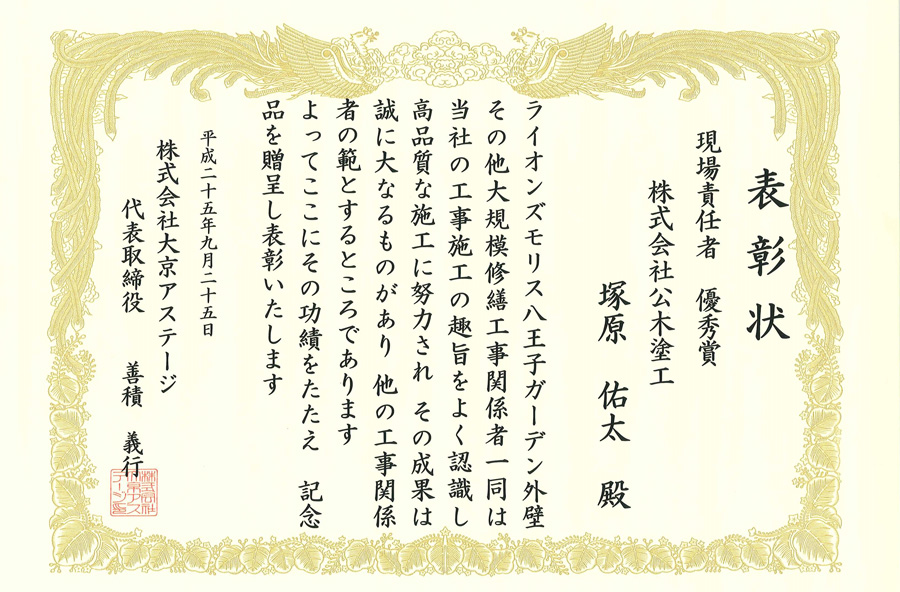 表彰状
現場責任者 優秀賞
株式会社公木塗工
塚原 佑太 殿
ライオンズモリス八王子ガーデン外壁
その他大規模修繕工事関係者一同は
当社の工事施工の趣旨をよく認識し
高品質な施工に努力され その成果は
誠に大なるものがあり 他の工事関係
者の範とするところであります
よってここにその功績をたたえ 記念
品を贈呈し表彰いたします
平成二十五年九月二十五日
株式会社大京アステージ
代表取締役 善積 義行
株式会社
大京アス
テージ印